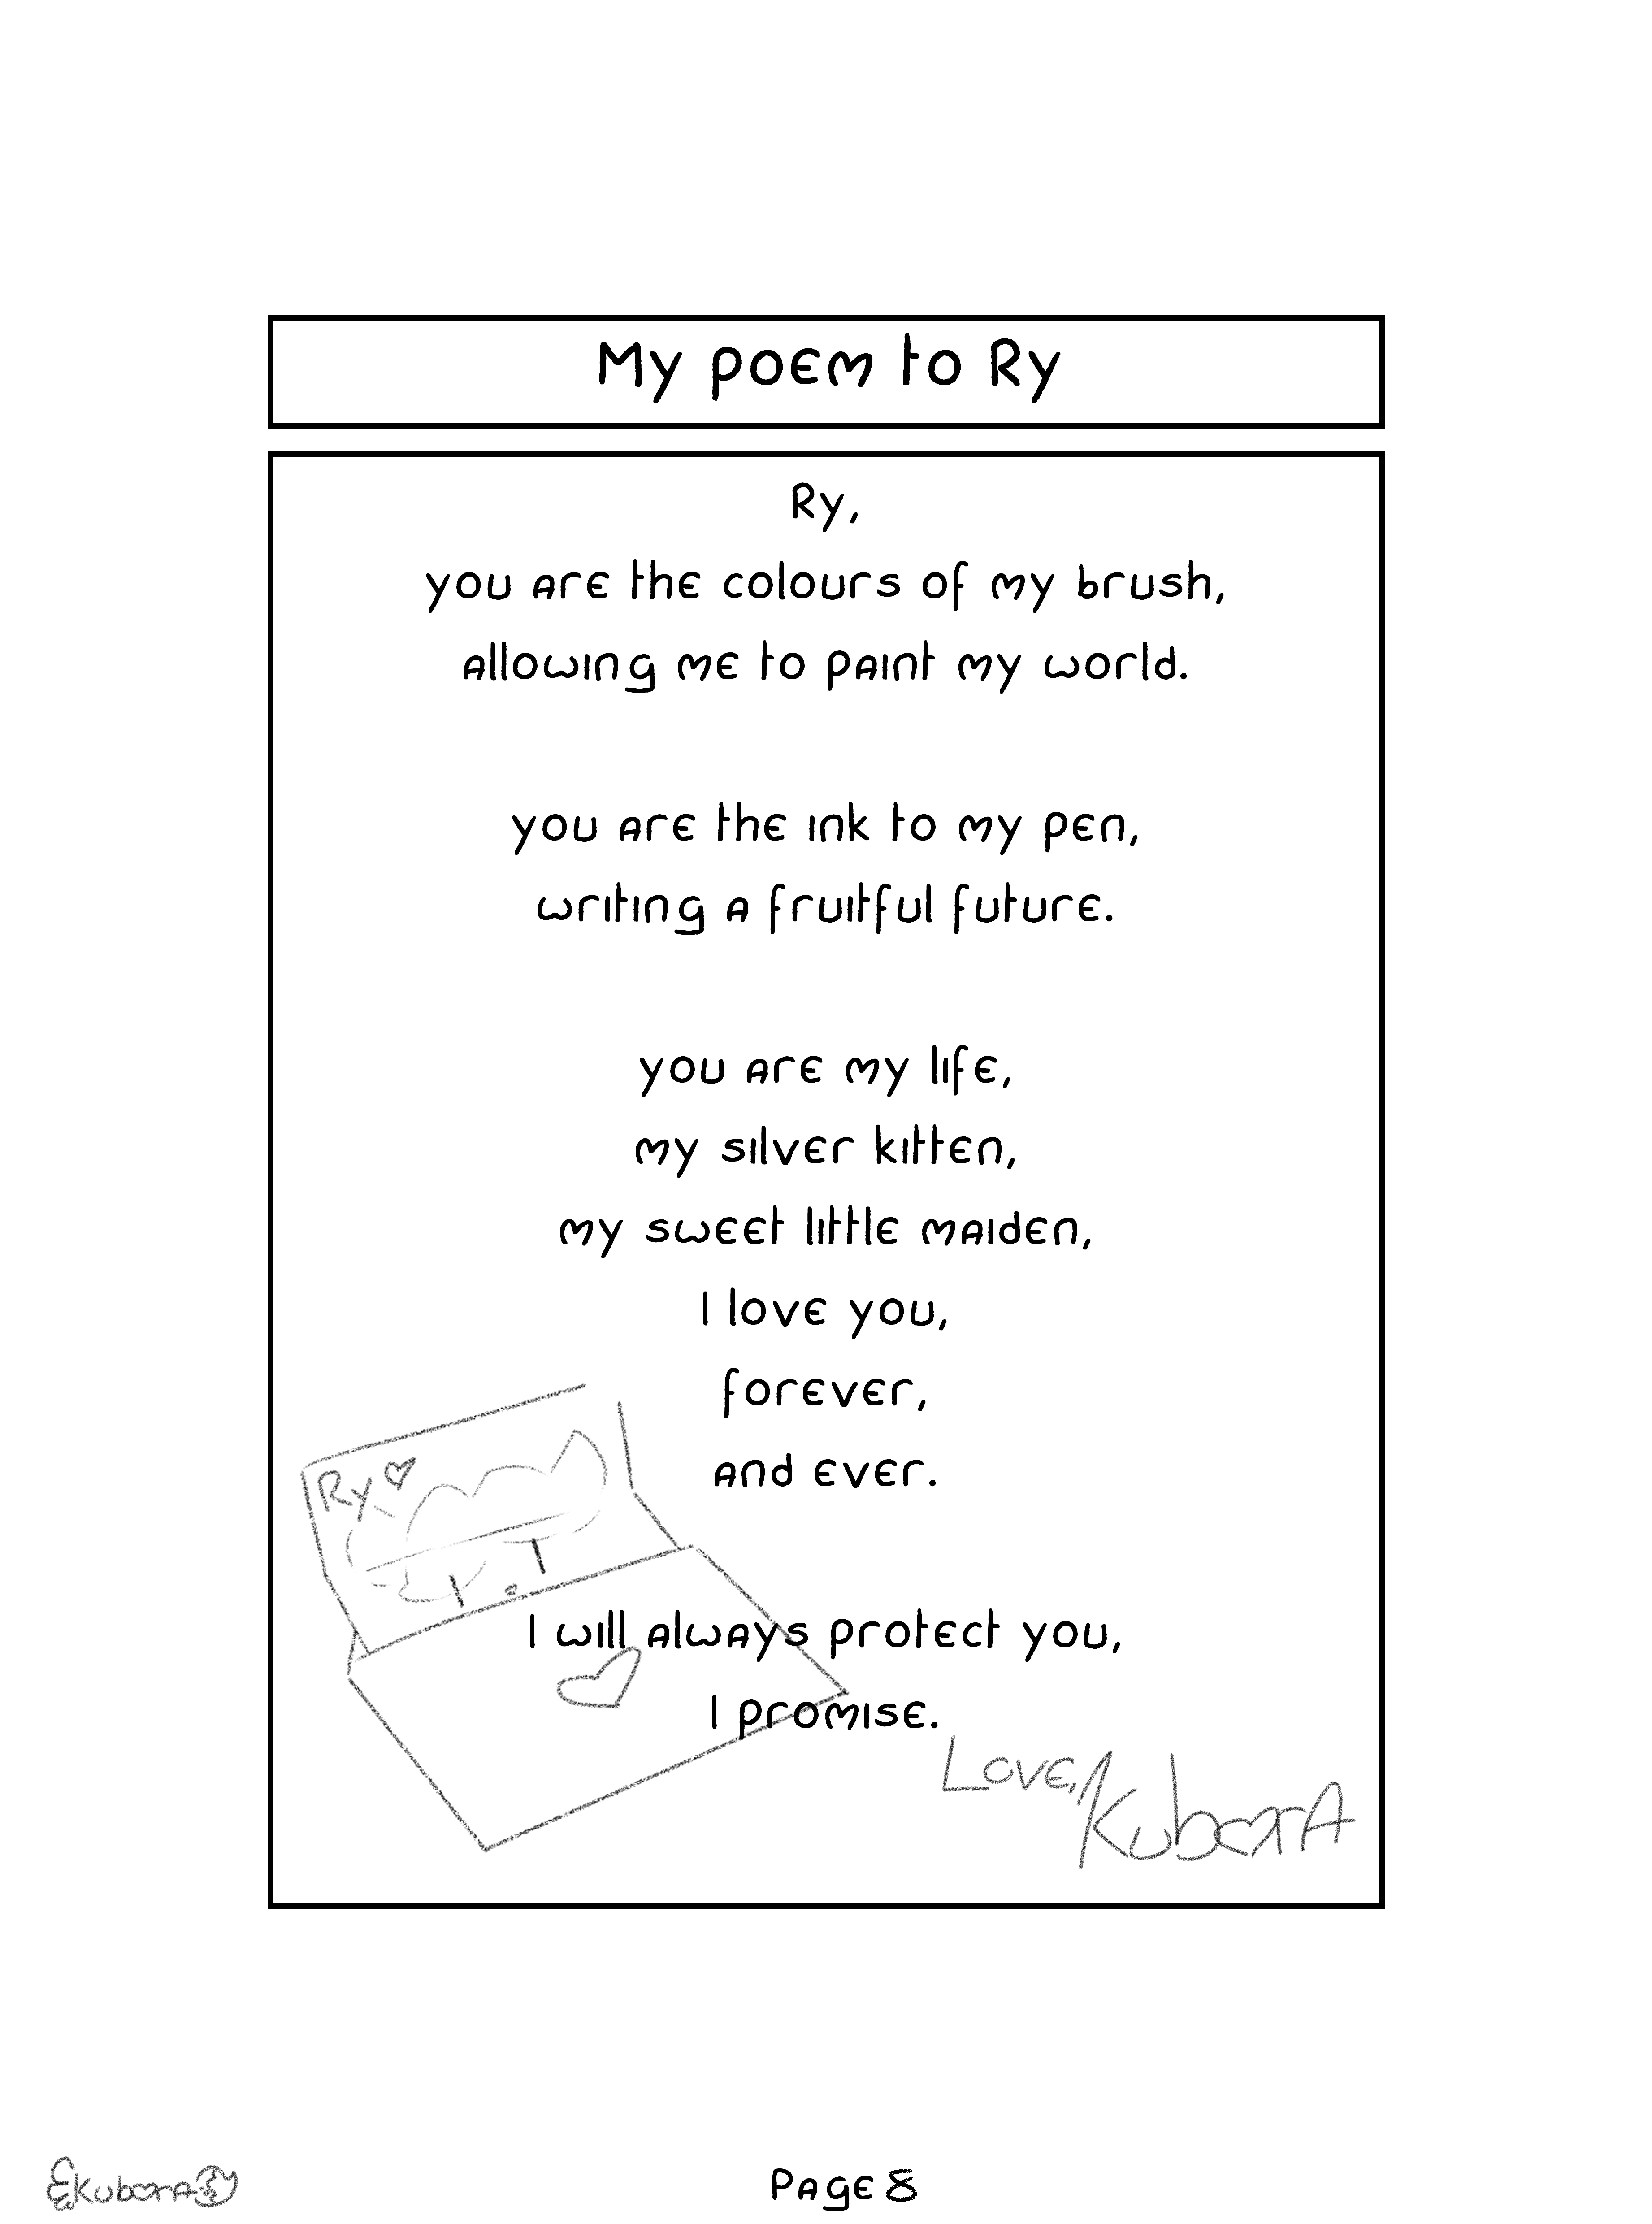 My poem to Ry
Ry,
you are the colours of my brush,
allowing me to paint my world.
you are the ink to my pen,
writing a fruitful future.
you are my life,
my silver kitten,
my sweet little maiden,
I love you,
forever,
and ever.
Ry
I will always protect you,
I promise.
Love,
Kubora
Kubora
Page 8